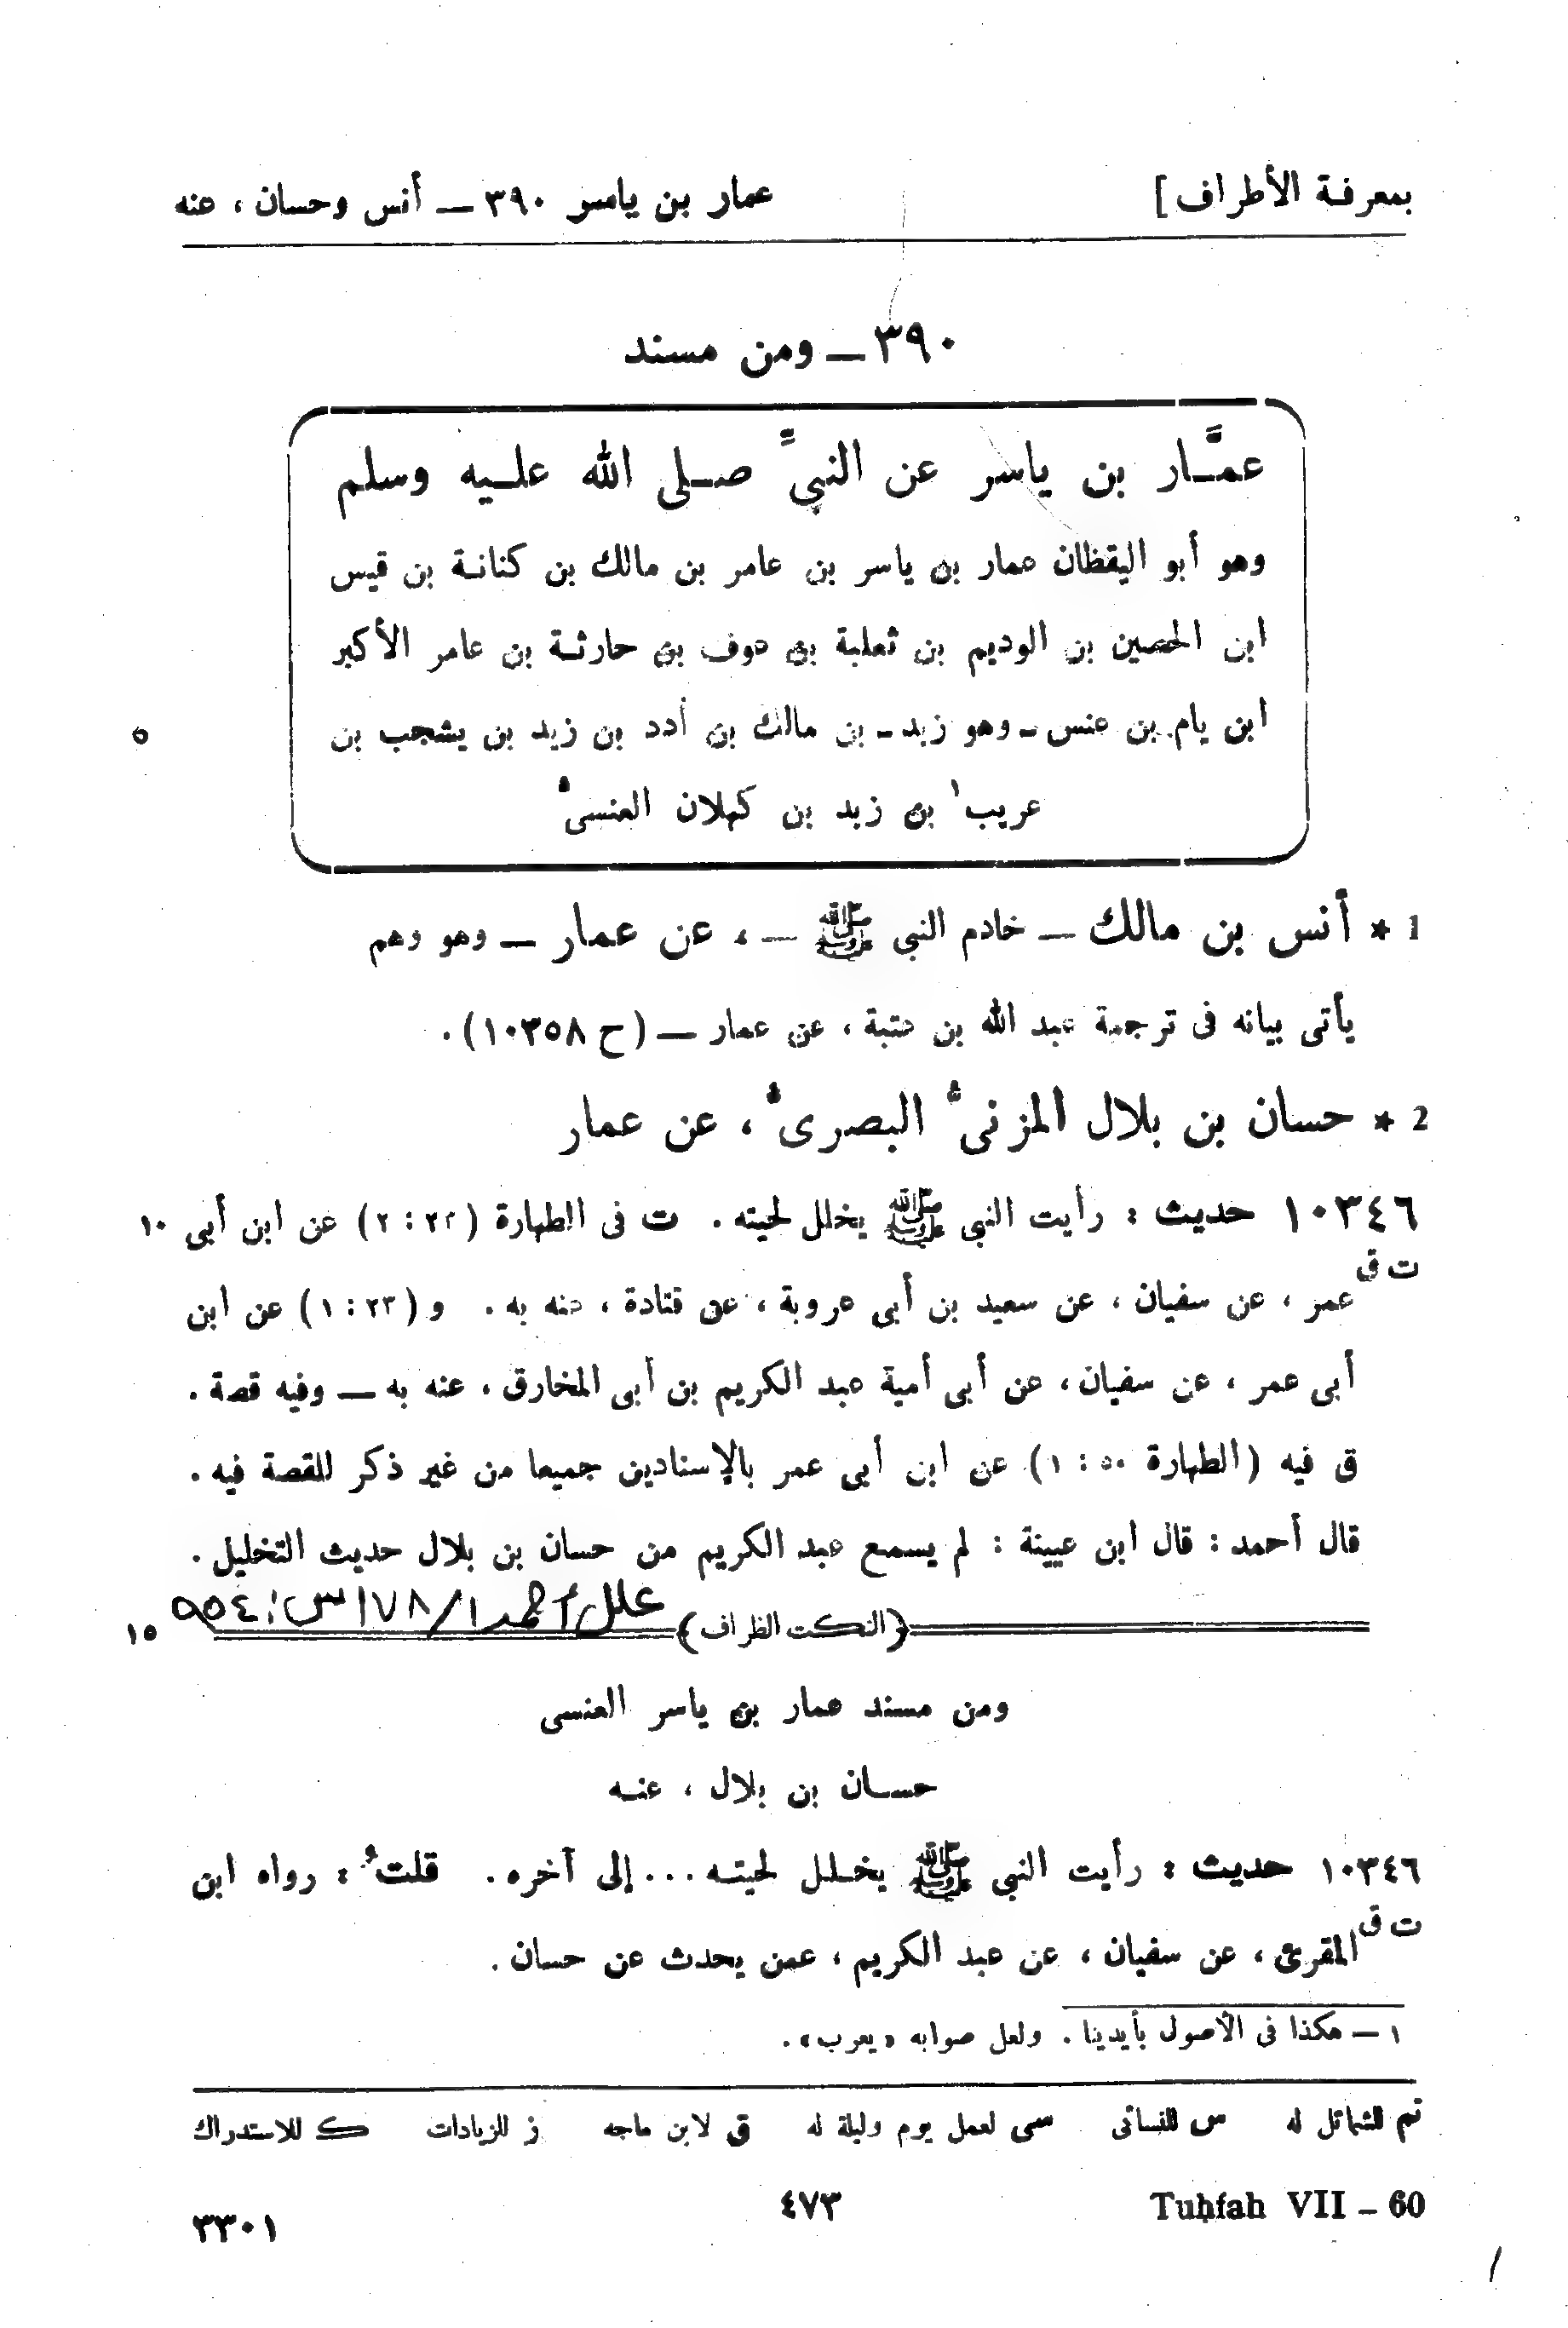 بمعرفة الأطراف ] عمار بن ياسر ٣٩٠ ــ أنس وحسان ، عنه
٣٩٠ ــ ومن مسند
عمَّـار بن ياسر عن النبيّ صـلى الله علـيه وسلم
وهو أبو اليقظان عمار بن ياسر بن عامر بن مالك بن كنانـة بن قيس
ابن الحصين بن الوديم بن ثعلبة بن عوف بن حارثـة بن عامر الأكبر
ابن يام بن عنس ـ وهو زيد ـ بن مالك بن أدد بن زيد بن يشجب بن
٥
عريب١ بن زيد بن كهلان العنسىّ
1 * أنس بن مالك ــ خادم النبى ﷺ ــ ، عن عمار ــ وهو وهم
يأتى بيانه فى ترجمة عبد الله بن عتبة ، عن عمار ــ (ح ١٠٣٥٨) .
2 * حسان بن بلال المزنىّ البصرىّ ، عن عمار
١٠٣٤٦ حديث : رأيت النبى ﷺ يخلل لحيته . ت فى الطهارة (٢٣ : ٢) عن ابن أبى ١٠
ت ق
عمر ، عن سفيان ، عن سعيد بن أبى عروبة ، عن قتادة ، عنه به . و (٢٣ : ١) عن ابن
أبى عمر ، عن سفيان ، عن أبى أمية عبد الكريم بن أبى المخارق ، عنه به ــ وفيه قصة .
ق فيه (الطهارة ٥٠ : ١) عن ابن أبى عمر بالإسنادين جميعا من غير ذكر للقصة فيه .
قال أحمد : قال ابن عيينة : لم يسمع عبد الكريم من حسان بن بلال حديث التخليل .
علل أحمد ١/١٧٨ س: ٩٥٤
(النكت الظراف) ١٥
ومن مسند عمار بن ياسر العنسى
حسـان بن بلال ، عنـه
١٠٣٤٦ حديث : رأيت النبى ﷺ يخـلل لحيتـه ... إلى آخره . قلتُ : رواه ابن
ت ق
المقرئ ، عن سفيان ، عن عبد الكريم ، عمن يحدث عن حسان .
١ ــ هكذا فى الأصول بأيدينا . ولعل صوابه «يعرب» .
تم للشمائل له س للنسائى سى لعمل يوم وليلة له ق لابن ماجه ز للزيادات ك للاستدراك
Tuḥfah VII – 60 ٤٧٣ ٣٣٠١